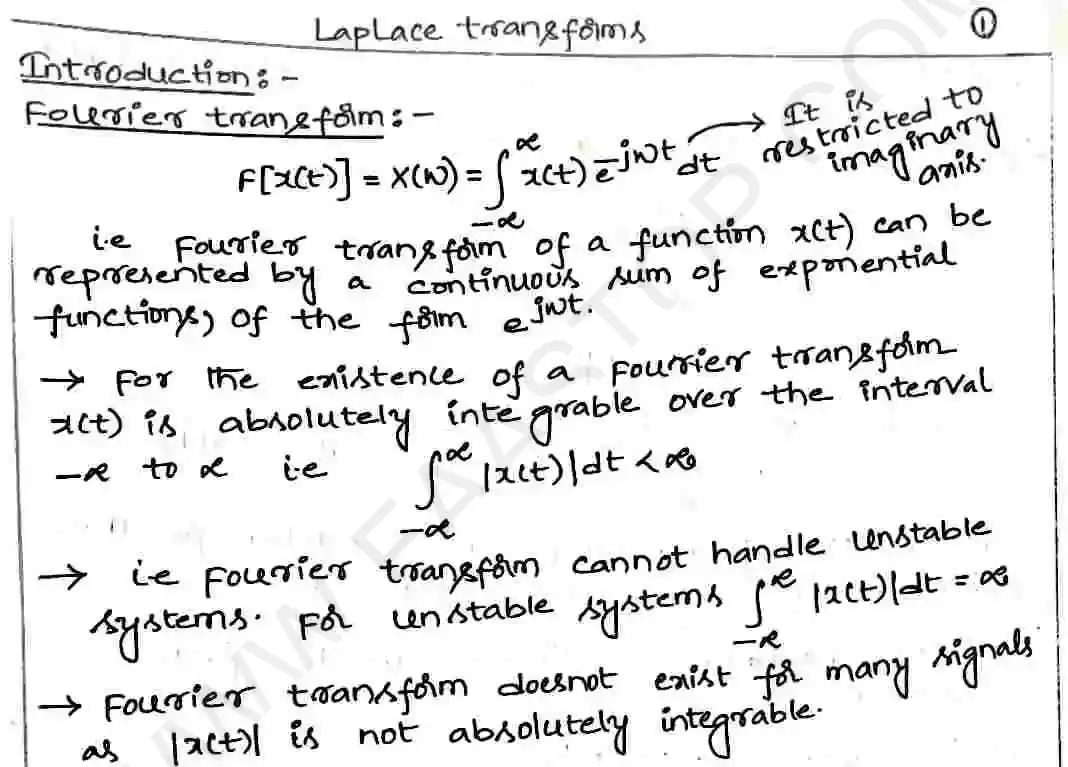 Laplace transforms
①
Introduction: -
Fourier transform: -
F[x(t)] = X(ω) = ∫_{-∞}^{∞} x(t) e^{-jωt} dt → It is
restricted to
imaginary
axis.
i.e Fourier transform of a function x(t) can be
represented by a continuous sum of exponential
functions, of the form e^{jωt}.
→ For the existence of a Fourier transform
x(t) is absolutely integrable over the interval
-∞ to ∞ i.e ∫_{-∞}^{∞} |x(t)| dt < ∞
→ i.e Fourier transform cannot handle unstable
systems. For unstable systems ∫_{-∞}^{∞} |x(t)| dt = ∞
→ Fourier transform doesnot exist for many signals
as |x(t)| is not absolutely integrable.